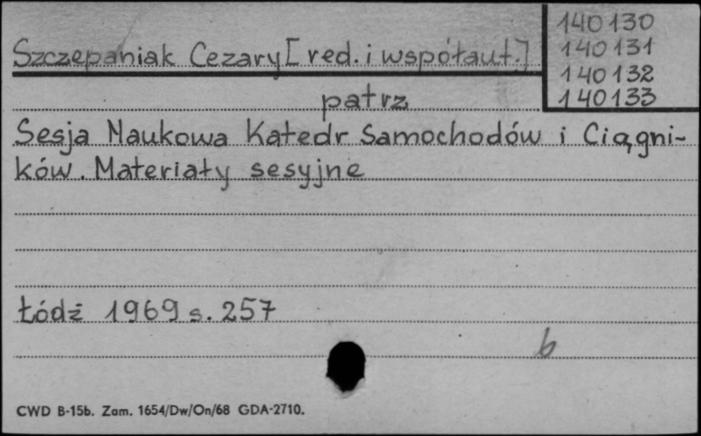 140130
140131
140132
140133
Szczepaniak Cezary [red. i współaut.]
patrz
Sesja Naukowa Katedr Samochodów i Ciągni-
ków. Materiały sesyjne
Łódź 1969 s. 257
b
CWD B-15b. Zam. 1654/Dw/On/68 GDA-2710.